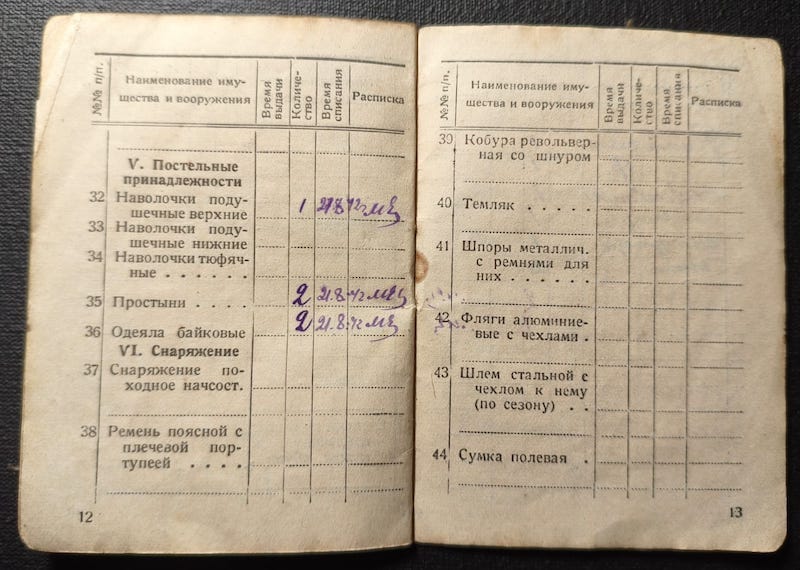 №№ п/п.
Наименование иму-
щества и вооружения
Время
выдачи
Количе-
ство
Время
списания
Расписка
V. Постельные
принадлежности
32 Наволочки поду-
шечные верхние 1 21.8.42г.
33 Наволочки поду-
шечные нижние
34 Наволочки тюфяч-
ные . . . . . .
35 Простыни . . . . 2 21.8.42г.
36 Одеяла байковые 2 21.8.42г.
VI. Снаряжение
37 Снаряжение по-
ходное начсост.
38 Ремень поясной с
плечевой пор-
тупеей . . . .
12
№№ п/п.
Наименование иму-
щества и вооружения
Время
выдачи
Количе-
ство
Время
списания
Расписка
39 Кобура револьвер-
ная со шнуром
40 Темляк . . . . .
41 Шпоры металлич.
с ремнями для
них . . . . . .
42 Фляги алюминие-
вые с чехлами .
43 Шлем стальной с
чехлом к нему
(по сезону) . .
44 Сумка полевая .
13